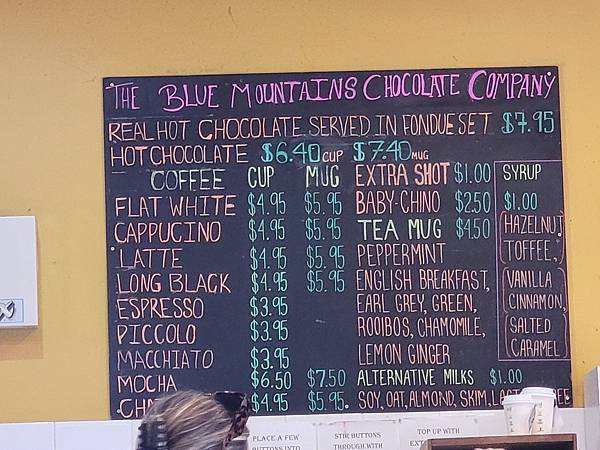 THE BLUE MOUNTAINS CHOCOLATE COMPANY
REAL HOT CHOCOLATE SERVED IN FONDUE SET $7.95
HOT CHOCOLATE $6.40 CUP $7.40 MUG
COFFEE CUP MUG
FLAT WHITE $4.95 $5.95
CAPPUCINO $4.95 $5.95
LATTE $4.95 $5.95
LONG BLACK $4.95 $5.95
ESPRESSO $3.95
PICCOLO $3.95
MACCHIATO $3.95
MOCHA $6.50 $7.50
$4.95 $5.95
EXTRA SHOT $1.00
BABY-CHINO $2.50
TEA MUG $4.50
PEPPERMINT
ENGLISH BREAKFAST,
EARL GREY, GREEN,
ROOIBOS, CHAMOMILE,
LEMON GINGER
ALTERNATIVE MILKS $1.00
SOY, OAT, ALMOND, SKIM,
SYRUP
$1.00
(HAZELNUT,
TOFFEE,)
(VANILLA
CINNAMON,)
(SALTED
CARAMEL)
PLACE A FEW
BUTTONS INTO
STIR BUTTONS
THROUGH WITH
TOP UP WITH